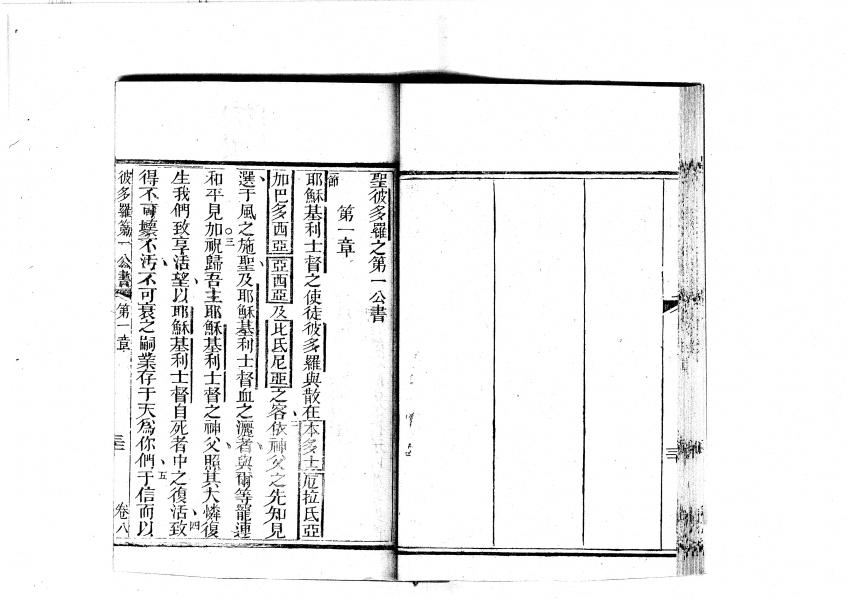 聖彼多羅之第一公書
第一章
節
耶穌基利士督之使徒彼多羅與散在本多士厄拉氏亞
加巴多西亞亞西亞及比氏尼亞之客依神父之先知見
選于風之施聖及耶穌基利士督血之灑者與爾等寵連
和平見加祝歸吾主耶穌基利士督之神父照其大憐復
生我們致享活望以耶穌基利士督自死者中之復活致
得不可壞不汚不可衰之嗣業存于天為你們于信而以
彼多羅第一公書 第一章 卷八
二 三 四 五